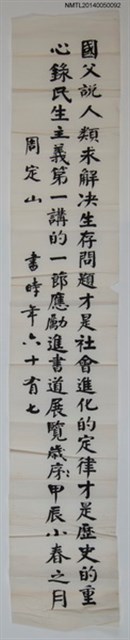 NMTL20140050092
國父說人類求解決生存問題才是社會進化的定律才是歷史的重
心錄民生主義第一講的一節應勵進書道展覽歲序甲辰小春之月
周定山 書時年六十有七